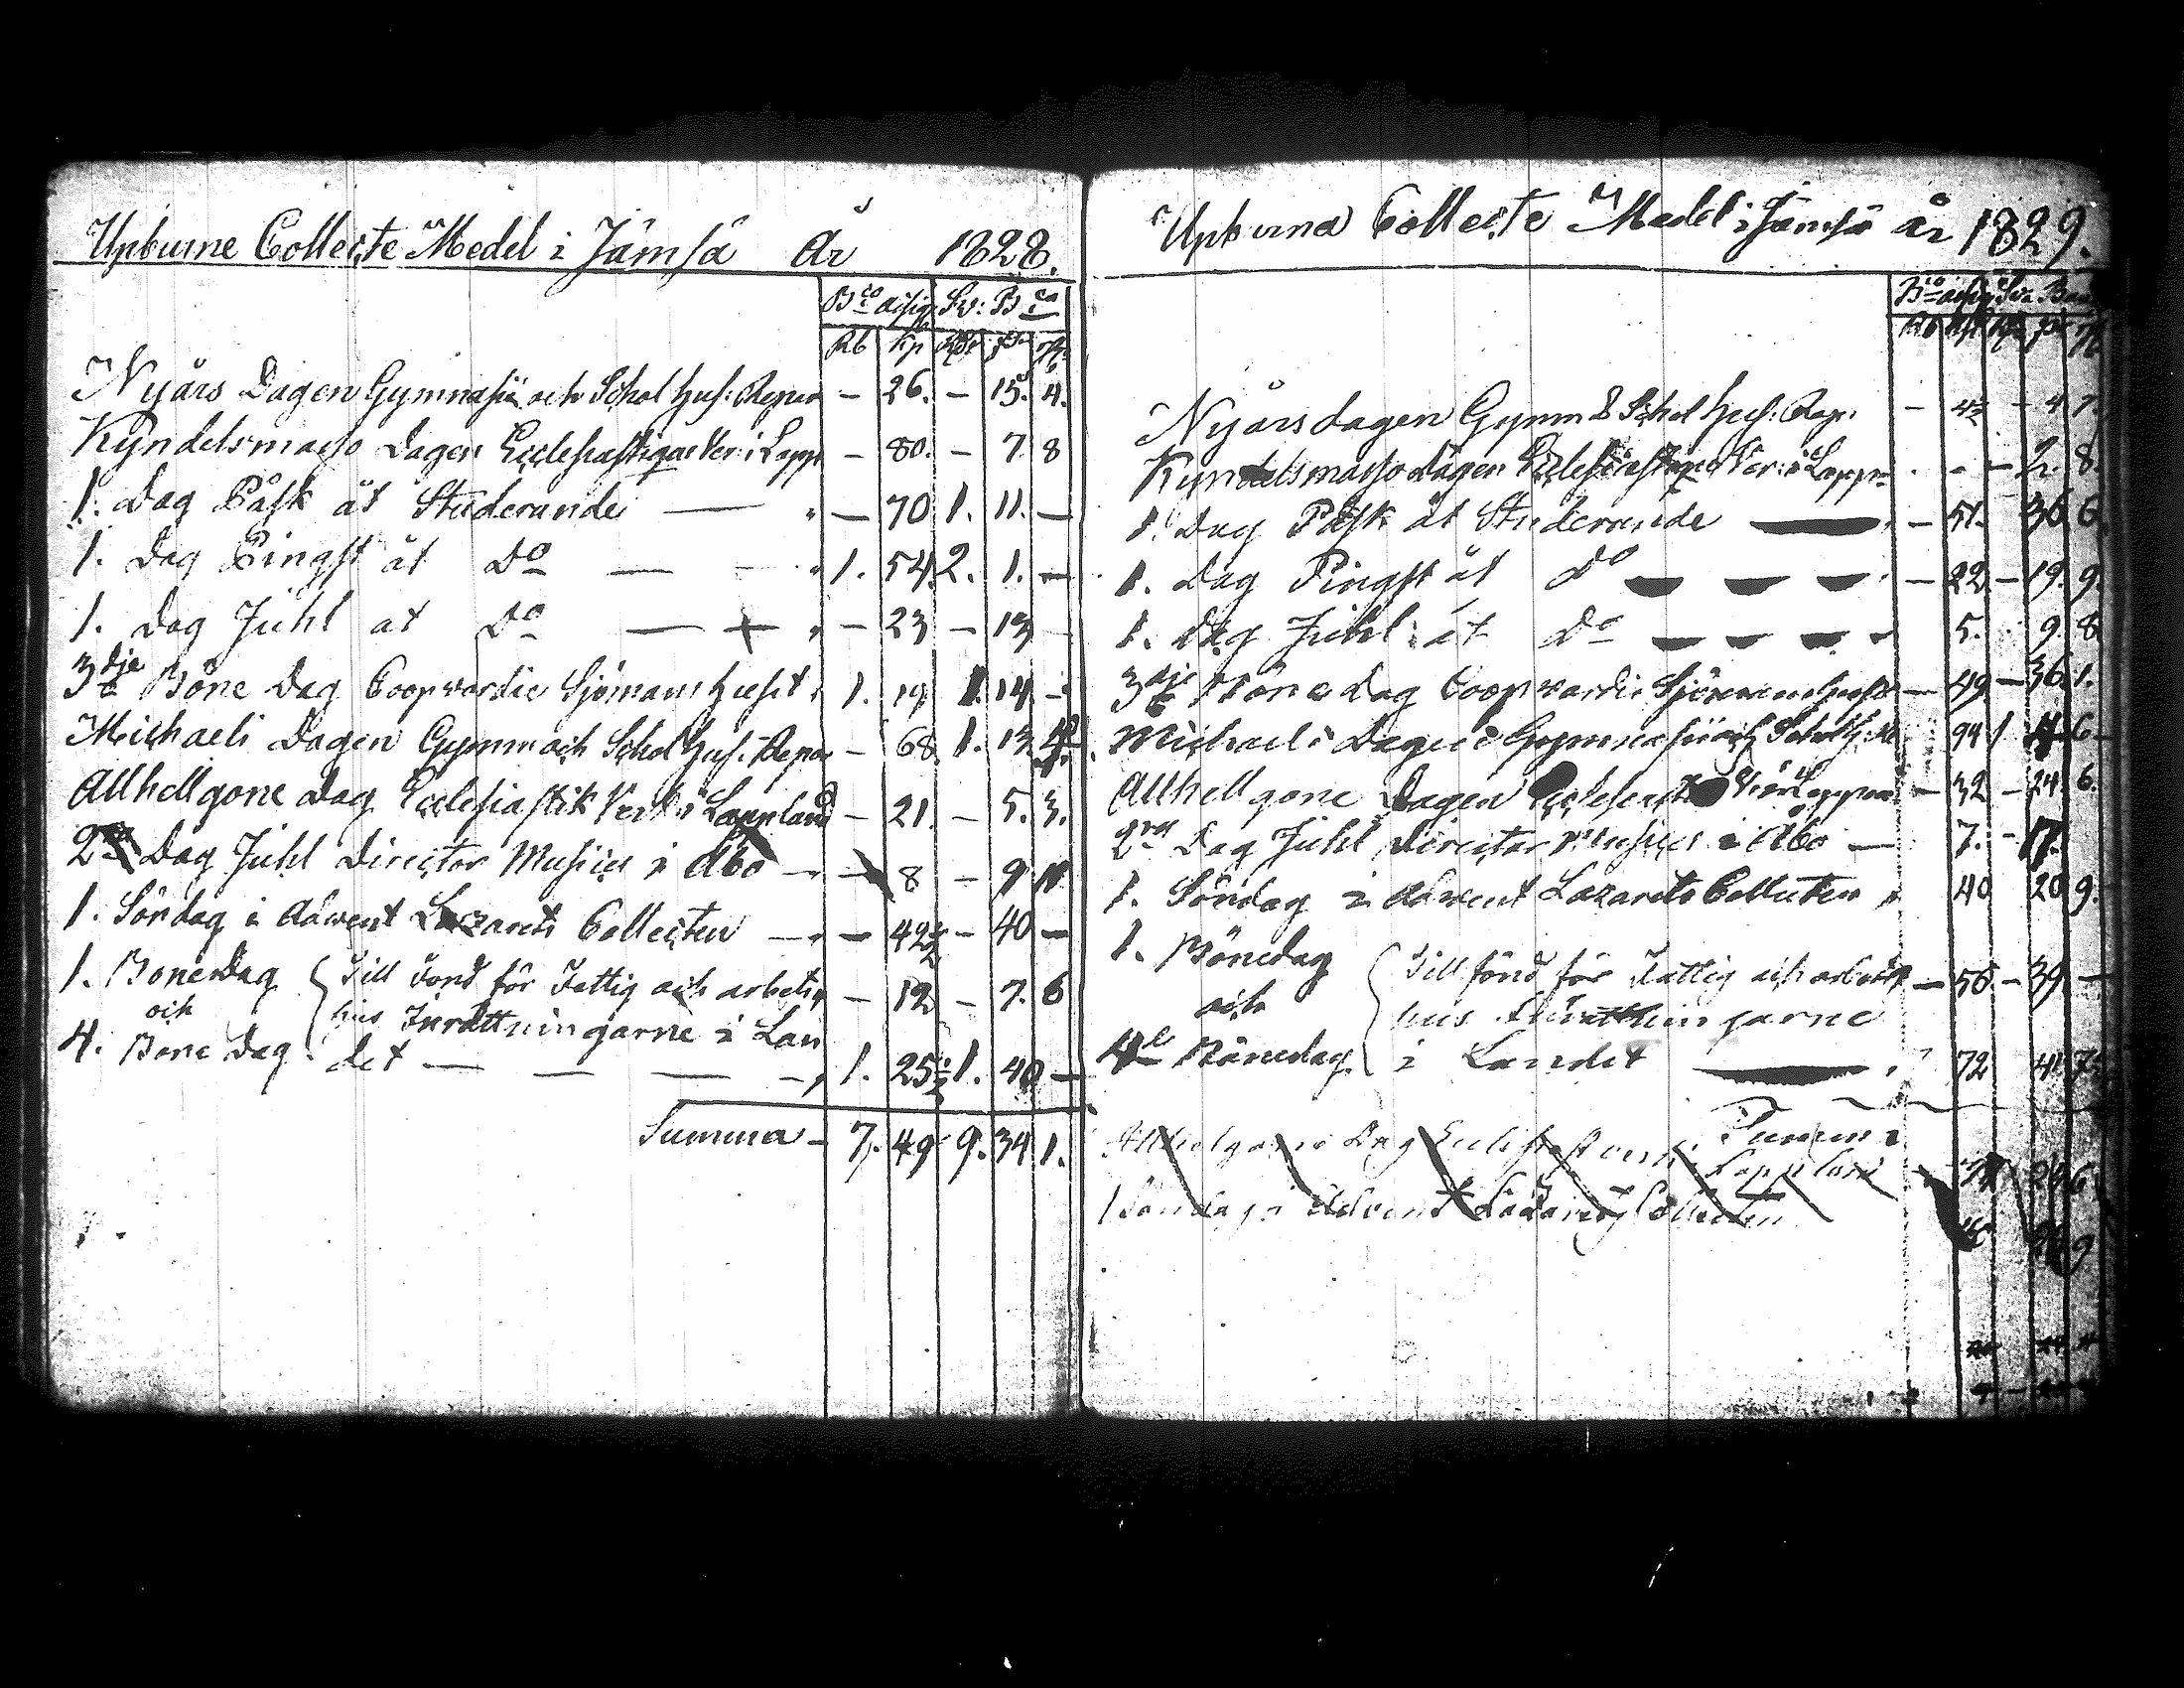 Upburne Collecte Medel i Jämsä År 1828.
Bco assig Sv: Bco
Rb Kp Rdr
Nyårs Dagen Gymnasii och Schol Hus: Repar — 26. — 15. 4.
Kyndelsmässo Dagen Ecclesiastique Ver: i Lapp — 80. — 7. 8
1. Dag Påsk åt Studerande — — 70 1. 11. —
1. Dag Pingst åt Do — — 1. 54. 2. 1. —
1. Dag Juhl åt Do — — 23 — 13
3dje Böne Dag Coopvardie Sjömans Huset 1. 19 1. 14. —
Michaeli Dagen Gymn och Schol Hus: Repar — 68. 1. 13
Allhellgone Dag Ecclesiastik Verk i Lappland — 21. — 5. 3.
Dag Juhl Director Musices i Åbo — 8 — 9 11
1. Söndag i Advent Lazarets Collecten — — 42½ — 40 —
1. Bönedag Till Fond för Fattig och arbets — 12 — 7. 6
och hus Inrättningarne i Lan
4. Böne Dag det — — — 1. 25½ 1. 40 —
Summa — 7. 49 9. 34 1.
Upburna Collecte Medel i Jämsä år 1829.
Nyårsdagen Gymn & Schol Hus: Rep: — — 4 7.
Kyndelsmässo Dagen Ver: i Lapp — 2. 8.
1. Dag Påsk åt Studerande — — 51. 36 6
1. Dag Pingst åt Do — — — — 22 — 19. 9.
1. Dag Juhl åt Do — — — 5. 9. 8
3dje Böne Dag Coopvardie Sjömans Huset — 49 — 36. 1.
Michaeli Dagen Gymnasii och Schol H. 94 1 6
Allhellgone Dagen — 32 — 24. 6.
2ra Dag Juhl Director Musices i Åbo — 7. — 17.
1. Söndag i Advent Lazarets Collecten 40 20 9.
1. Bönedag Till fond för Fattig och arbets — 56 — 39. —
och hus Inrättningarne
4de Bönedag i Landet — 72 41 7.
Summa
Allhelgone Dag Lappland
1 Söndag i Advent Lazarets Collecten